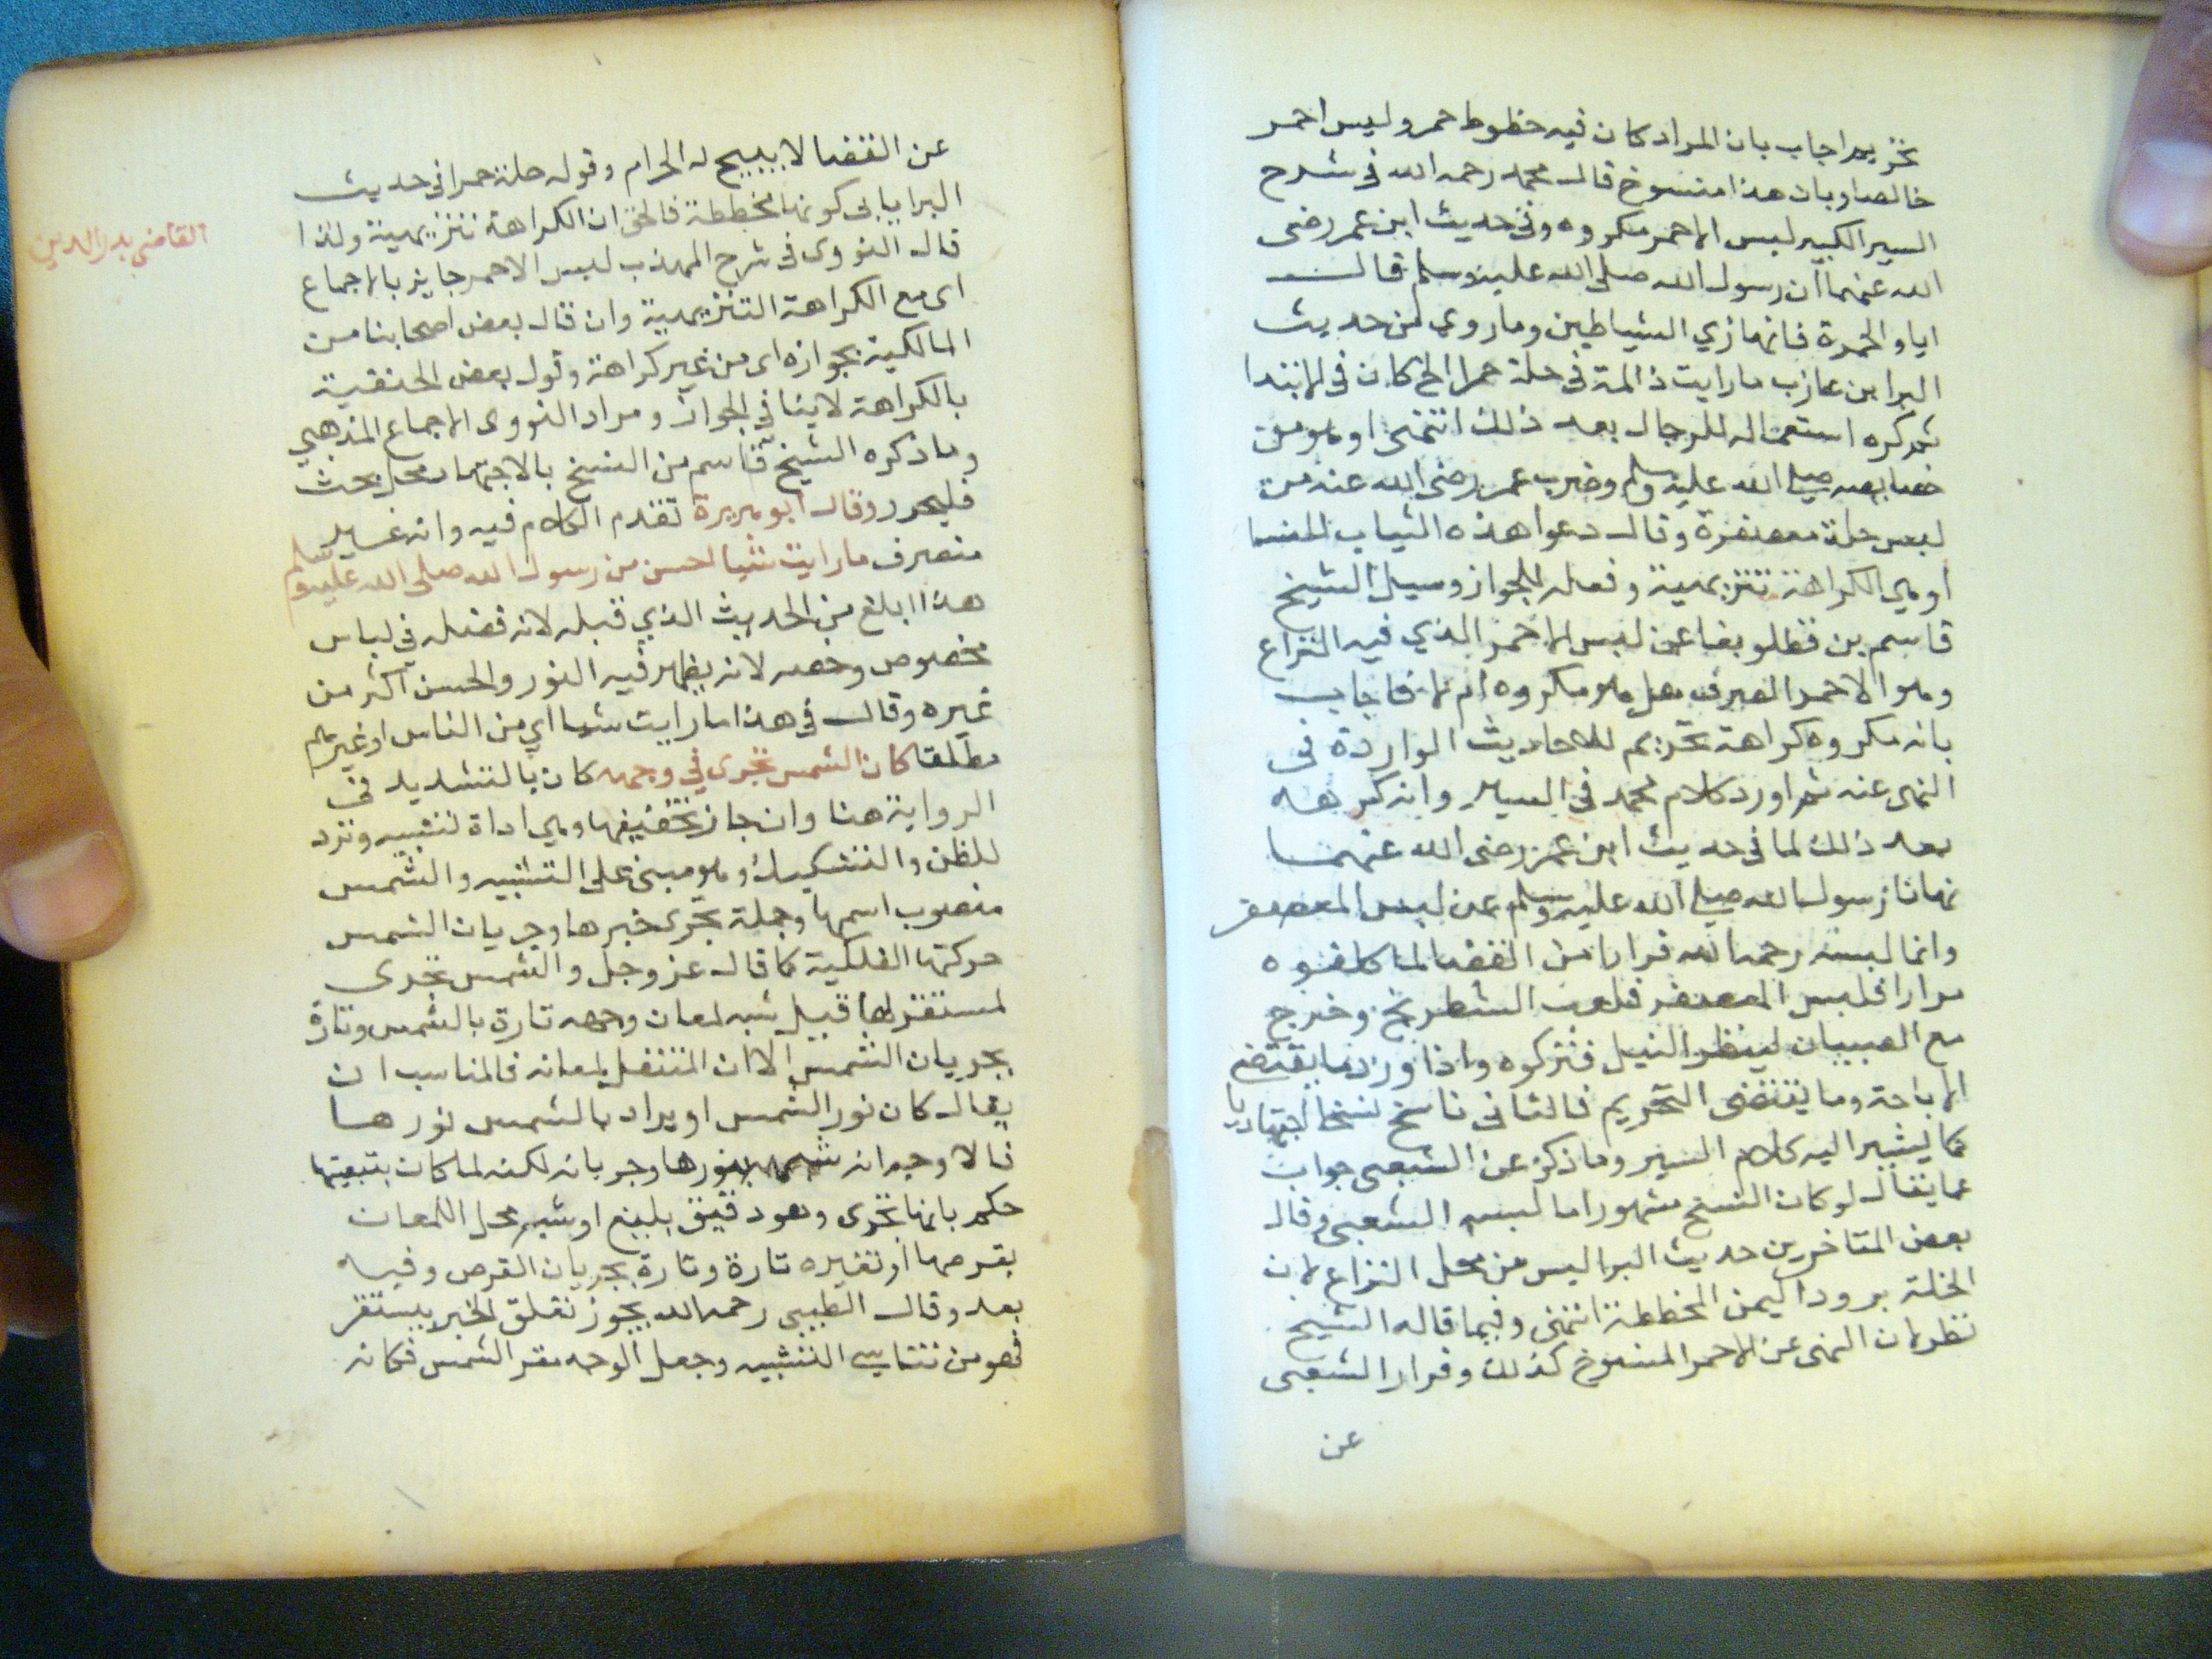 تحريم اجاب بان المراد كان فيه خطوط حمر وليس احمر
خالصا وبان هذا منسوخ قال محمد رحمه الله في شرح
السير الكبير لبس الاحمر مكروه وفي حديث ابن عمر رضى
الله عنهما ان رسول الله صلى الله عليه وسلم قال
اياو الحمرة فانها زي الشياطين وما روي من حديث
البرا بن عازب ما رايت ذا لمة في حلة حمرا الخ كان في الابتدا
ثم كره استعماله للرجال بعد ذلك انتهى او هو من
خصايصه صلى الله عليه وسلم وضرب عمر رضى الله عنه من
لبس حلة معصفرة وقال دعوا هذه الثياب للنسا
او هي الكراهة تنزيهية وفعله للجواز وسيل الشيخ
قاسم بن قطلوبغا عن لبس الاحمر الذي فيه النزاع
وهو الاحمر الصرف هل هو مكروه ام لا فاجاب
بانه مكروه كراهة تحريم للاحاديث الواردة في
النهى عنه ثم اورد كلام محمد في السير وانه كرهه
بعد ذلك لما في حديث ابن عمر رضى الله عنهما
نهانا رسول الله صلى الله عليه وسلم عن لبس المعصفر
وانما لبسه رحمه الله فرارا من القضا لما كلفوه
مرارا فلبس المعصفر فلعب الشطرنج وخرج
مع الصبيان لينظر النيل فتركوه واذا ورد ما يقتضى
الاباحة وما يقتضى التحريم فالثاني ناسخ نسخا اجتهاديا
كما يشير اليه كلام السير وما ذكر عن الشعبى جواب
عما يقال لو كان النسخ مشهورا ما لبسه الشعبى وقال
بعض المتاخرين حديث البرا ليس من محل النزاع لان
الحلة برود اليمن المخططة انتهى وفيما قاله الشيخ
نظر لان النهى عن الاحمر المنسوخ كذلك وفرار الشعبى
عن
عن القضا لا يبيح له الحرام وقوله حلة حمرا في حديث
البرا يابى كونها مخططة فالحق ان الكراهة تنزيهية ولذا
القاضى بدر الدين
قال النووى في شرح المهذب لبس الاحمر جايز بالاجماع
اى مع الكراهة التنزيهية وان قال بعض اصحابنا من
المالكية بجوازه اى من غير كراهة وقول بعض الحنفية
بالكراهة لا ينافي الجواز ومراد النووى الاجماع المذهبي
وما ذكره الشيخ قاسم من النسخ بالاجتهاد محل بحث
فليحرر وقال ابو هريرة تقدم الكلام فيه وانه غير
منصرف ما رايت شيا احسن من رسول الله صلى الله عليه وسلم
هذا ابلغ من الحديث الذي قبله لانه فضله في لباس
مخصوص وخصه لانه يظهر فيه النور والحسن اكثر من
غيره وقال في هذا ما رايت شيا اي من الناس او غيرهم
مطلقا كان الشمس تجرى في وجهه كان بالتشديد في
الرواية هنا وان جاز تخفيفها وهي اداة تشبيه وترد
للظن والتشكيك وهو مبنى على التشبيه والشمس
منصوب اسمها وجملة تجرى خبرها وجريان الشمس
حركتها الفلكية كما قال عز وجل والشمس تجرى
لمستقر لها قيل شبه لمعان وجهه تارة بالشمس وتارة
بجريان الشمس الا ان المنتقل لمعانه فالمناسب ان
يقال كان نور الشمس او يراد بالشمس نورها
فالاوجه انه شبهه بنورها وجريانه لكنه لما كان بتبعيتها
حكم بانها تجرى وهو دقيق بليغ او شبه محل اللمعان
بقرصها او تغيره تارة وتارة بجريان القرص وفيه
بعد وقال الطيبى رحمه الله يجوز تعلق الخبر بيستقر
فهو من تناسي التشبيه وجعل الوجه مقر الشمس فكانه